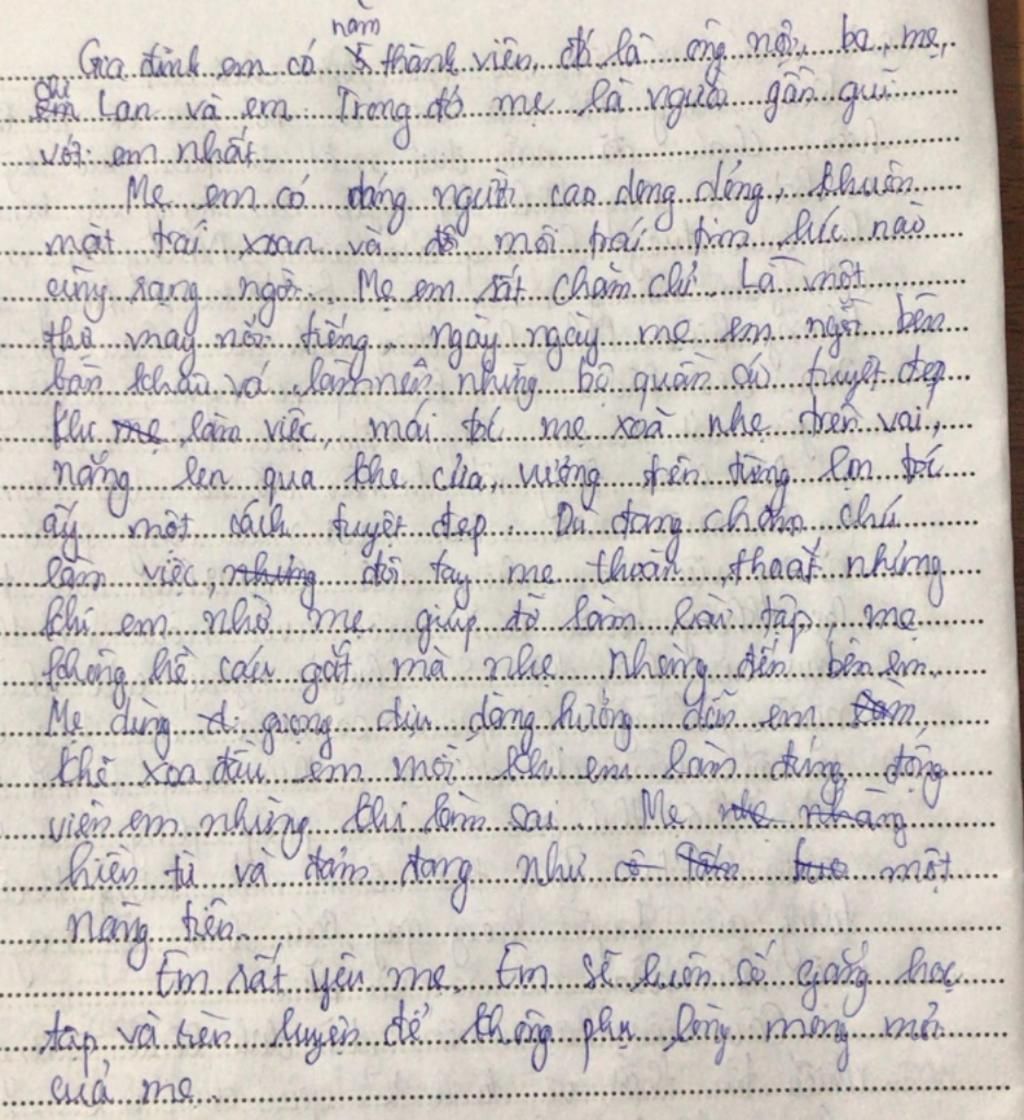 Gia đình em có năm thành viên, đó là ông nội, ba, mẹ,
chị Lan và em. Trong đó mẹ là người gần gũi
với em nhất.
Mẹ em có dáng người cao dong dỏng, khuôn
mặt trái xoan và đôi môi trái tim lúc nào
cũng rạng ngời. Mẹ em rất chăm chỉ. Là một
thợ may nổi tiếng, ngày ngày mẹ em ngồi bên
bàn khâu vá, làm nên những bộ quần áo tuyệt đẹp.
Khi làm việc, mái tóc mẹ xoà nhẹ trên vai,
nắng len qua khe cửa, vương trên từng lọn tóc
ấy một cách tuyệt đẹp. Dù đang chăm chú
làm việc, đôi tay mẹ thoăn thoắt nhưng
khi em nhờ mẹ giúp đỡ làm bài tập, mẹ
không hề cáu gắt mà nhẹ nhàng đến bên em.
Mẹ dùng giọng dịu dàng hướng dẫn em,
khẽ xoa đầu em mỗi khi em làm đúng, động
viên em những khi làm sai. Mẹ
hiền từ và đảm đang như một
nàng tiên.
Em rất yêu mẹ. Em sẽ luôn cố gắng học
tập và rèn luyện để không phụ lòng mong mỏi
của mẹ.